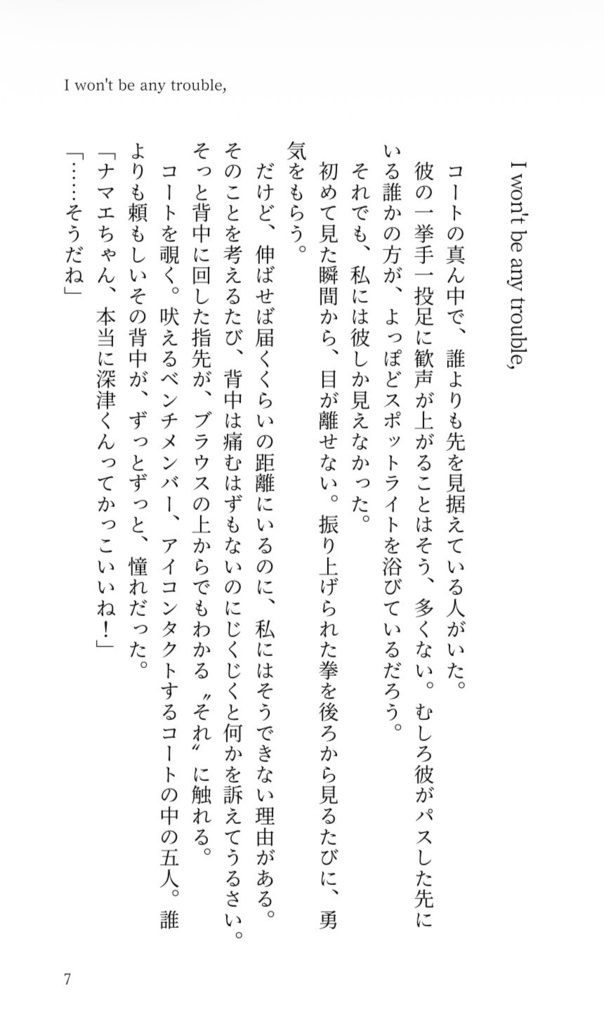 I won't be any trouble,
I won't be any trouble,
コートの真ん中で、誰よりも先を見据えている人がいた。
彼の一挙手一投足に歓声が上がることはそう、多くない。むしろ彼がパスした先に
いる誰かの方が、よっぽどスポットライトを浴びているだろう。
それでも、私には彼しか見えなかった。
初めて見た瞬間から、目が離せない。振り上げられた拳を後ろから見るたびに、勇
気をもらう。
だけど、伸ばせば届くくらいの距離にいるのに、私にはそうできない理由がある。
そのことを考えるたび、背中は痛むはずもないのにじくじくと何かを訴えてうるさい。
そっと背中に回した指先が、ブラウスの上からでもわかる〝それ〟に触れる。
コートを覗く。吠えるベンチメンバー、アイコンタクトするコートの中の五人。誰
よりも頼もしいその背中が、ずっとずっと、憧れだった。
「ナマエちゃん、本当に深津くんってかっこいいね！」
「……そうだね」
7